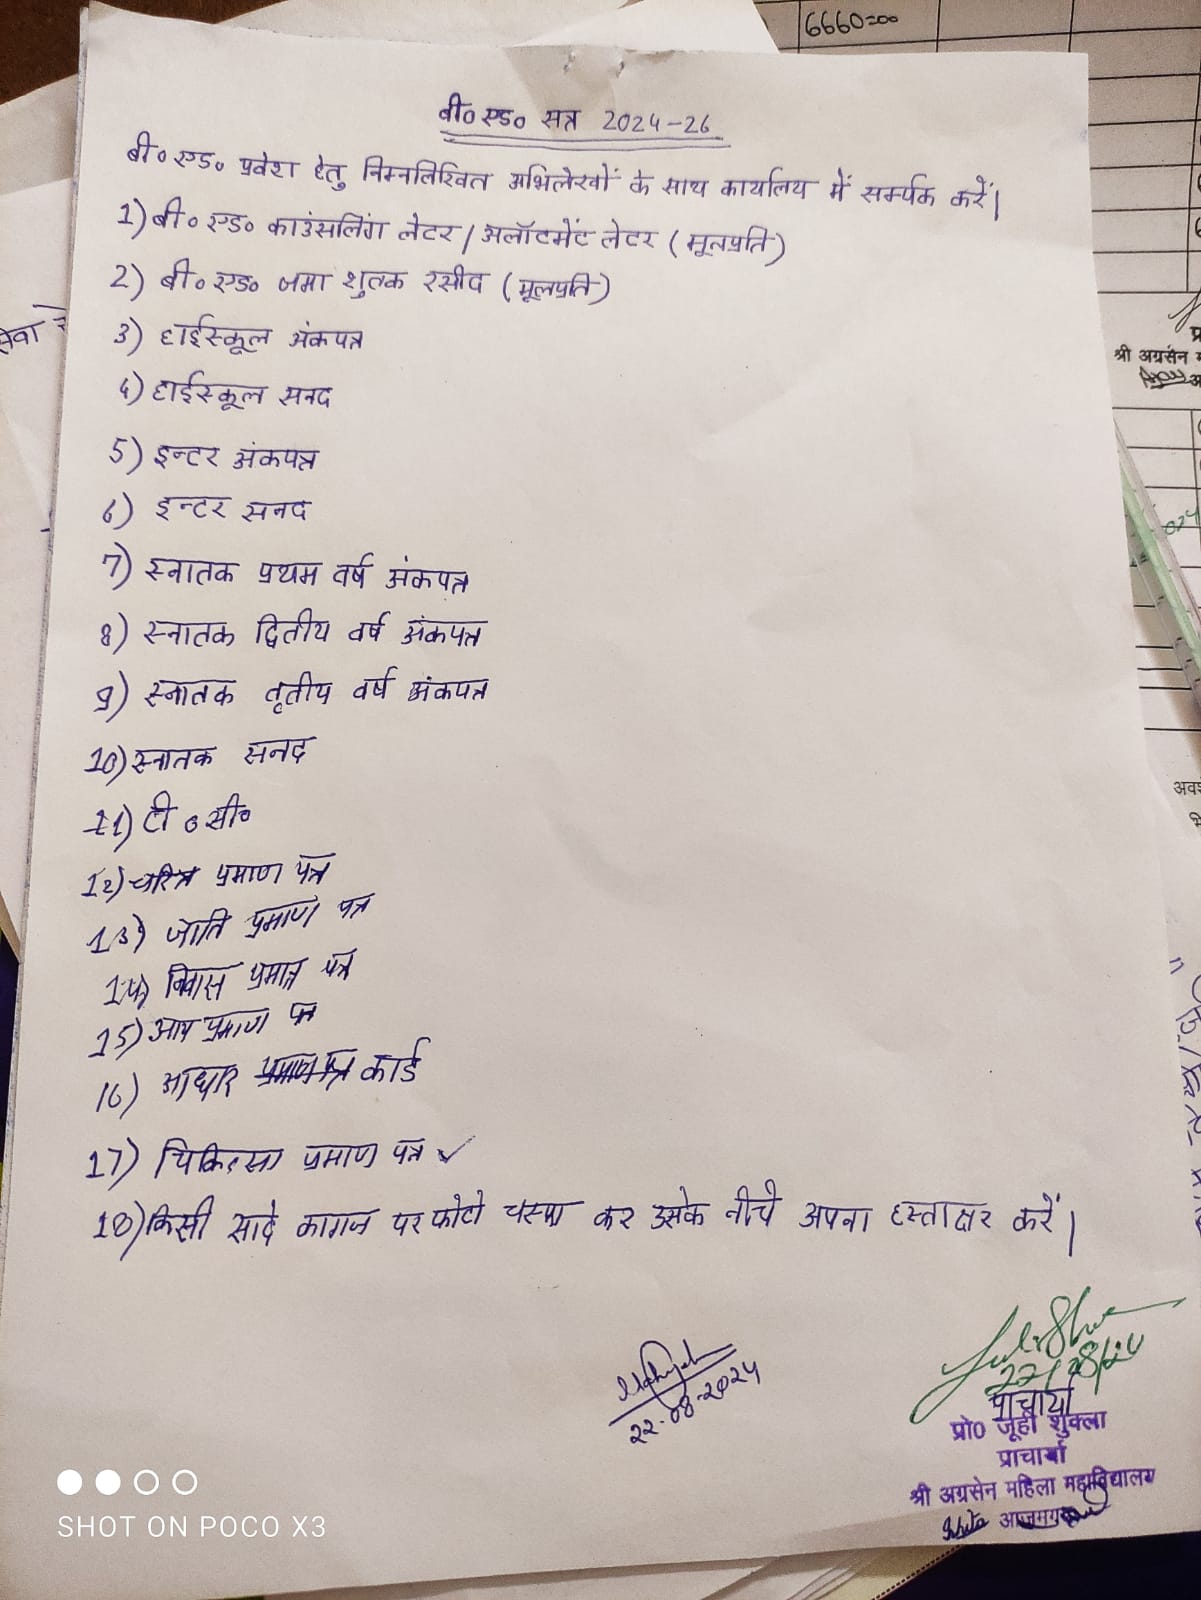 6660=00
बी० एड० सत्र 2024-26
बी० एड० प्रवेश हेतु निम्नलिखित अभिलेखों के साथ कार्यालय में सर्म्पक करें।
1) बी० एड० काउंसलिंग लेटर / अलॉटमेंट लेटर (मूलप्रति)
2) बी० एड० जमा शुल्क रसीद (मूलप्रति)
3) हाईस्कूल अंकपत्र
4) हाईस्कूल सनद
5) इन्टर अंकपत्र
6) इन्टर सनद
7) स्नातक प्रथम वर्ष अंकपत्र
8) स्नातक द्वितीय वर्ष अंकपत्र
9) स्नातक तृतीय वर्ष अंकपत्र
10) स्नातक सनद
11) टी० सी०
12) चरित्र प्रमाण पत्र
13) जाति प्रमाण पत्र
14) निवास प्रमाण पत्र
15) आय प्रमाण पत्र
16) आधार प्रमाण पत्र कार्ड
17) चिकित्सा प्रमाण पत्र ✓
18) किसी सादे कागज पर फोटो चस्पा कर उसके नीचे अपना हस्ताक्षर करें।
श्री अग्रसेन
22-08-2024
22/08/24
प्राचार्या
प्रो० जूही शुक्ला
प्राचार्या
श्री अग्रसेन महिला महाविद्यालय
आजमगढ़
SHOT ON POCO X3